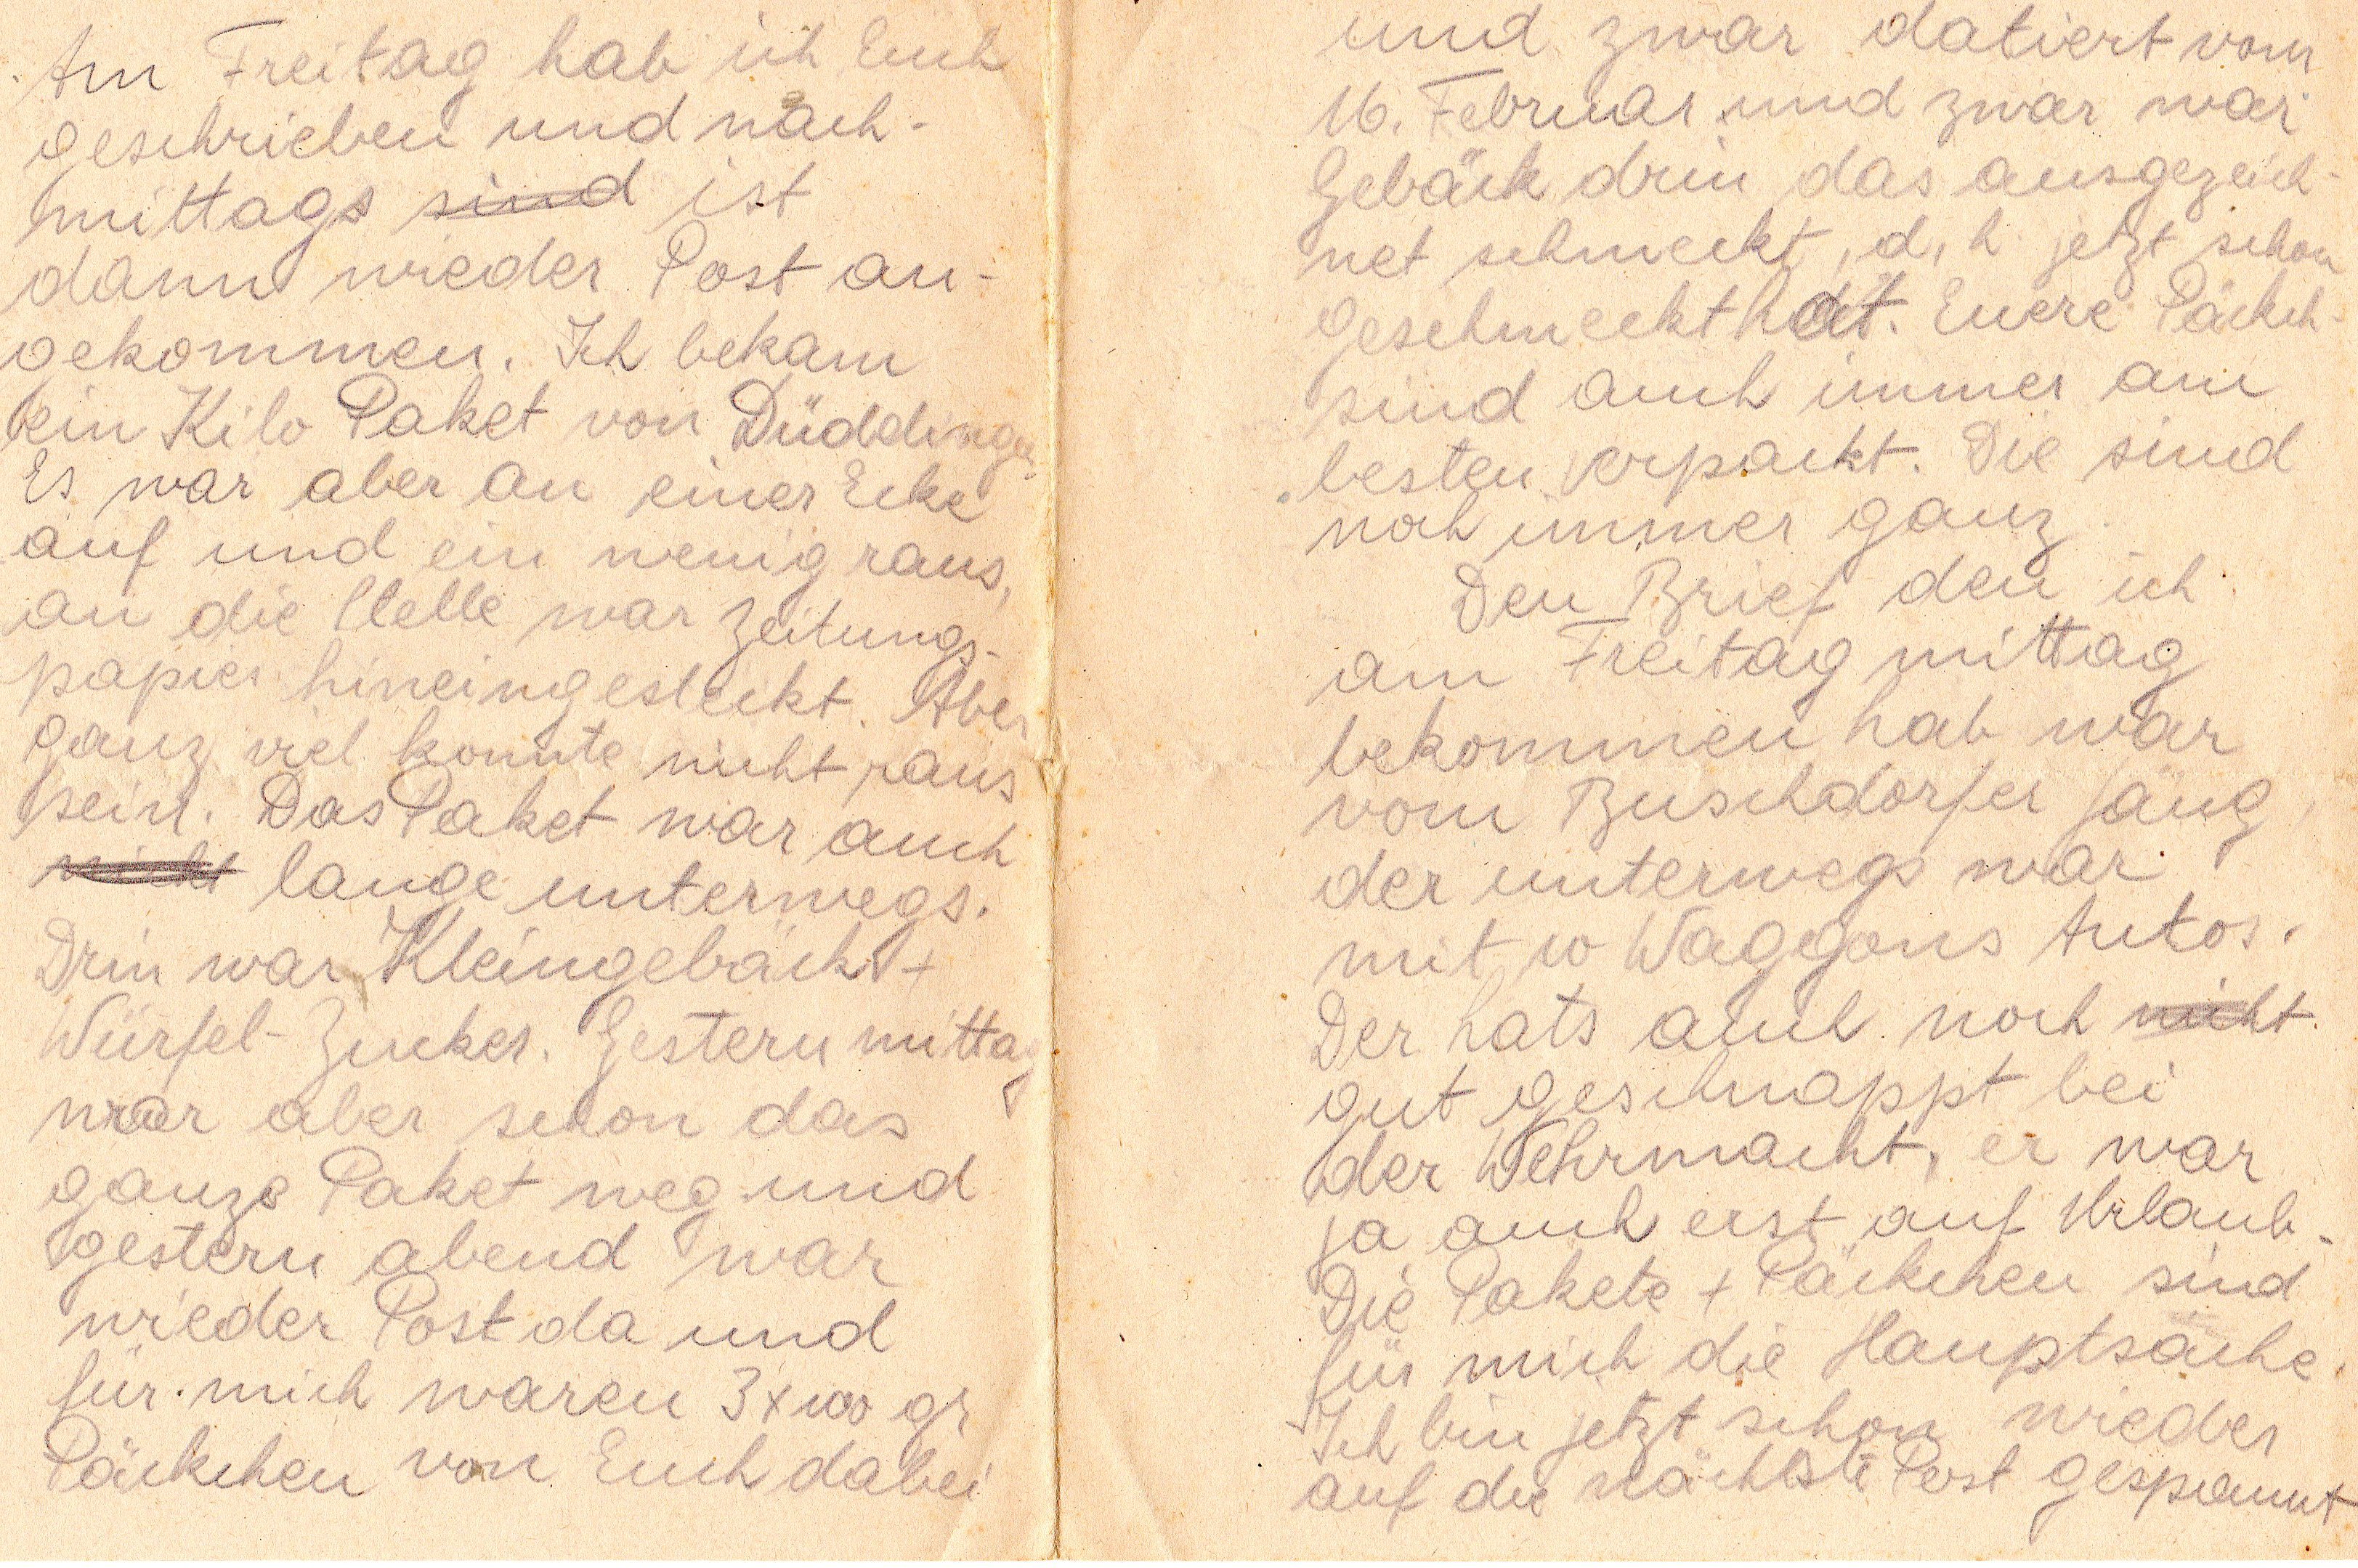 Am Freitag hab ich Euch
geschrieben und nach-
mittags sind ist
dann wieder Post an-
gekommen. Ich bekam
ein Kilo Paket von Düddingen
Es war aber an einer Ecke
auf und ein wenig raus,
an die Stelle war Zeitungs-
papier hineingesteckt. Aber
ganz viel konnte nicht raus
sein. Das Paket war auch
nicht lange unterwegs.
Drin war Kleingebäck +
Würfel-Zucker. Gestern mittag
war aber schon das
ganze Paket weg und
gestern abend war
wieder Post da und
für mich waren 3x100 gr
Päckchen von Euch dabei
und zwar datiert vom
16. Februar und zwar war
Gebäck drin das ausgezeich-
net schmeckt, d. h. jetzt schon
geschmeckt hat. Euere Päckch-
sind auch immer am
besten verpackt. Die sind
noch immer ganz.
Den Brief den ich
am Freitag mittag
bekommen hab war
vom Buschdorfer Jäng,
der unterwegs war
mit 10 Waggons Autos.
Der hats auch noch nicht
gut geschnappt bei
der Wehrmacht, er war
ja auch erst auf Urlaub.
Die Pakete + Päckchen sind
für mich die Hauptsache.
Ich bin jetzt schon wieder
auf die nächste Post gespannt